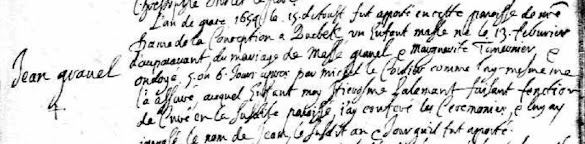 L'an de grace 1659 le 15 d'Aoust fut aporté en cette paroisse de nre
Dame de la Conception a Quebek un Enfant masle né le 13 februrier
Jean gravel
auparavant du mariage de Masse gravel & Marguerite Tavernier &
ondoyé 5 ou 6 Jours apres par michel le comme luy-mesme me
l'a assuré, auquel Enfant moy Hierosme Lalemant faisant fonction
de Curé en la susdite paroisse, j'ay conferé les Ceremonies & luy ay
imposé le nom de Jean le susdit an & Jour qu'il fut aporté.